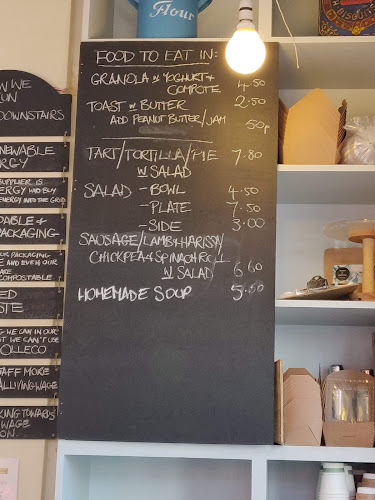 Flour
FOOD TO EAT IN:
GRANOLA W YOGHURT &
COMPOTE 4.50
TOAST W BUTTER 2.50
ADD PEANUT BUTTER/JAM 50p
TART/TORTILLA/PIE 7.80
W SALAD
SALAD - BOWL 4.50
- PLATE 7.50
- SIDE 3.00
SAUSAGE/LAMB & HARISSA/
CHICKPEA & SPINACH ROLL
W SALAD 6.60
HOMEMADE SOUP
W WE
UN
DOWNSTAIRS
NEWABLE
RGY
SUPPLIER IS
ERGY AND BUY
ENERGY INTO THE GRID
DABLE &
PACKAGING
PACKAGING
AND EVEN OUR
ARE
COMPOSTABLE
ED
STE
WE CAN IN OUR
WE CAN'T USE
OLLECO
TAFF MORE
AL LIVING WAGE
KING TOWARDS
WAGE
ON.